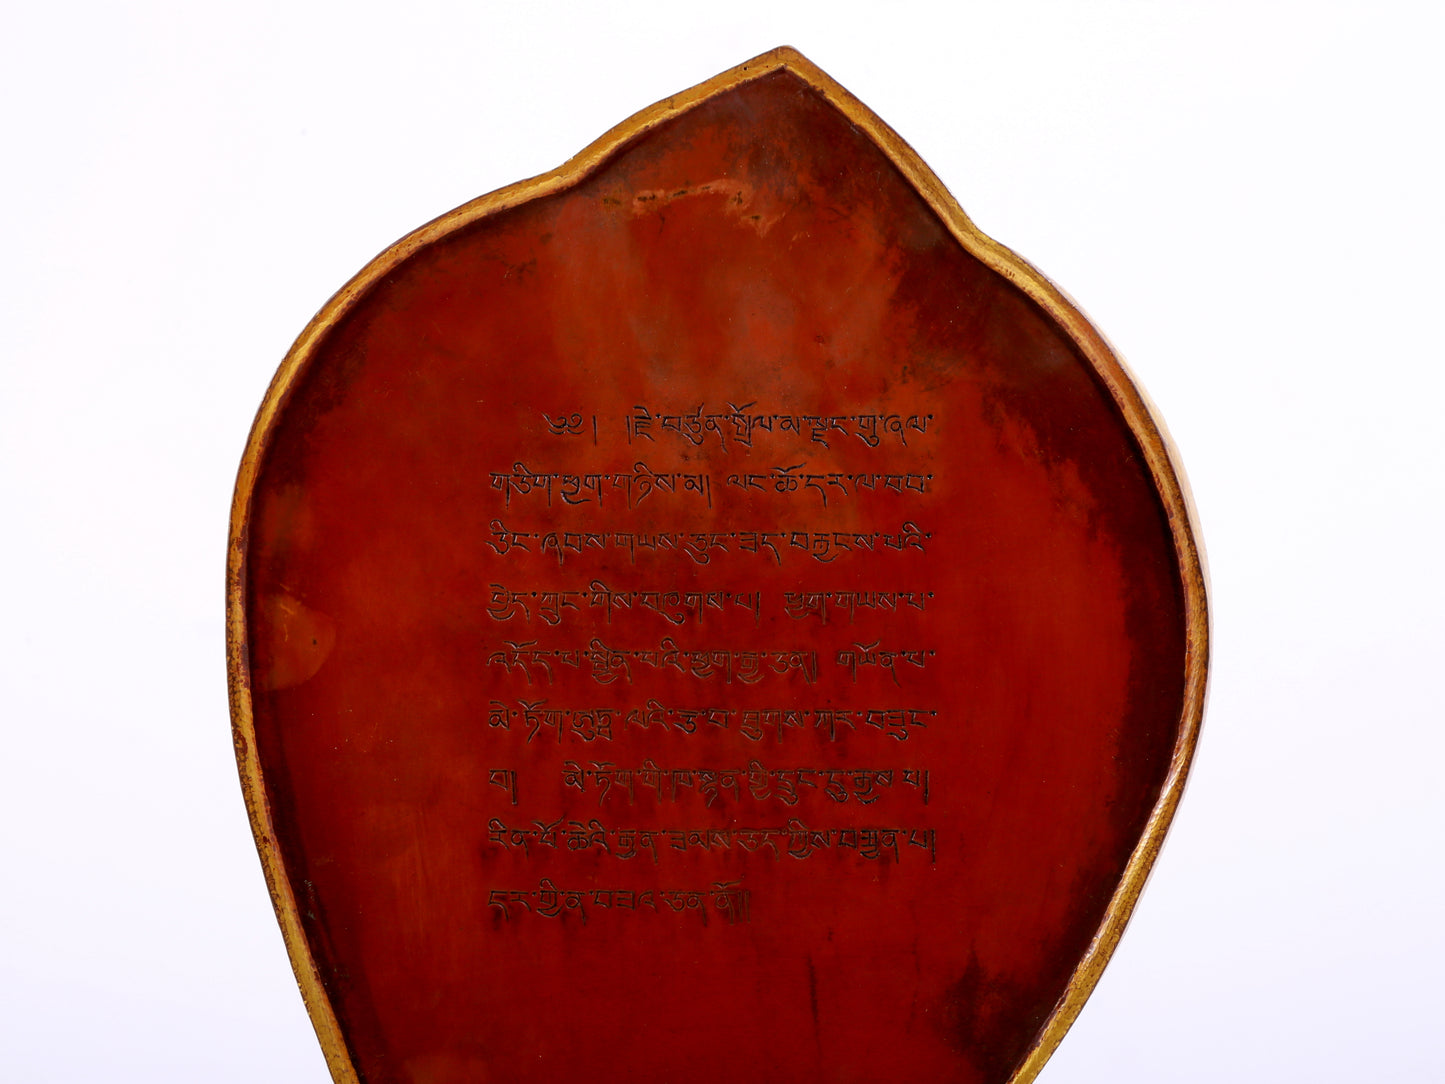 ༄༅། །རྗེ་བཙུན་སྒྲོལ་མ་ལྗང་གུ་ཞལ་
གཅིག་ཕྱག་གཉིས་མ། ལང་ཚོ་དར་ལ་བབ་
ཅིང་ཞབས་གཡས་ཅུང་ཟད་བརྐྱངས་པའི་
ཕྱེད་ཀྲུང་གིས་བཞུགས་པ། ཕྱག་གཡས་པ་
འདོད་པ་སྦྱིན་པའི་ཕྱག་རྒྱ་ཅན། གཡོན་པ་
མེ་ཏོག་ཨུཏྤ་ལའི་རྩ་བ་ཐུགས་ཀར་བཟུང་
བ། མེ་ཏོག་གི་ཁ་སྙན་གྱི་དྲུང་དུ་རྒྱས་པ།
རིན་པོ་ཆེའི་རྒྱན་ཟམས་ཅད་ཀྱིས་བརྒྱན་པ།
དར་གྱིན་བཟའ་ཅན་ནོ།།